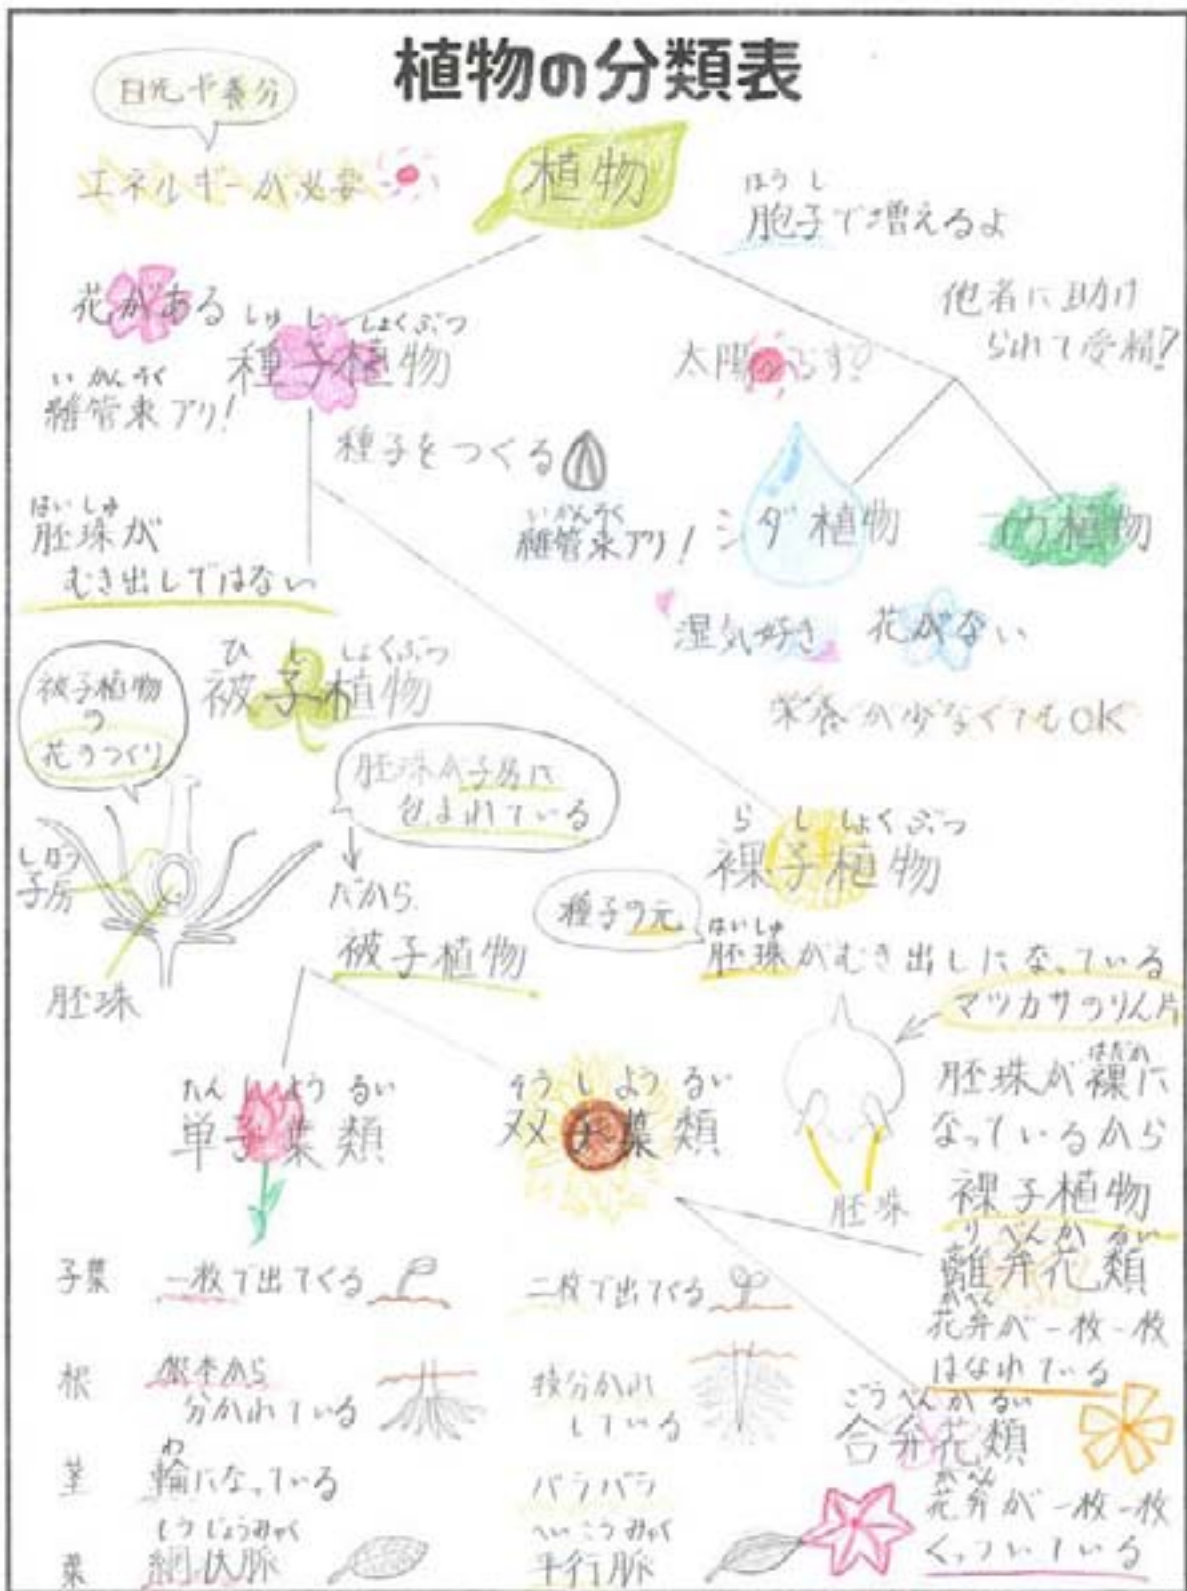 植物の分類表
日光や養分
エネルギーが必要
植物
ほうし
胞子で増えるよ
花がある
しゅししょくぶつ
種子植物
いかんそく
維管束アリ!
種子をつくる
太陽
他者に助け
られて受精?
いかんそく
維管束アリ!
シダ植物
植物
湿気好き
花がない
栄養が少なくてもOK
はいしゅ
胚珠が
むき出しではない
ひししょくぶつ
被子植物
被子植物
の
花のつくり
しぼう
子房
胚珠
胚珠が子房に
包まれている
だから
被子植物
らししょくぶつ
裸子植物
種子の元
はいしゅ
胚珠がむき出しになっている
マツカサのりん片
胚珠
はだか
胚珠が裸に
なっているから
裸子植物
たんしようるい
単子葉類
そうしようるい
双子葉類
りべんかるい
離弁花類
かべん
花弁が一枚一枚
はなれている
ごうべんかるい
合弁花類
かべん
花弁が一枚一枚
くっついている
子葉
一枚で出てくる
二枚で出てくる
根
根本から
分かれている
枝分かれ
している
茎
わ
輪になっている
バラバラ
葉
もうじょうみゃく
網状脈
へいこうみゃく
平行脈